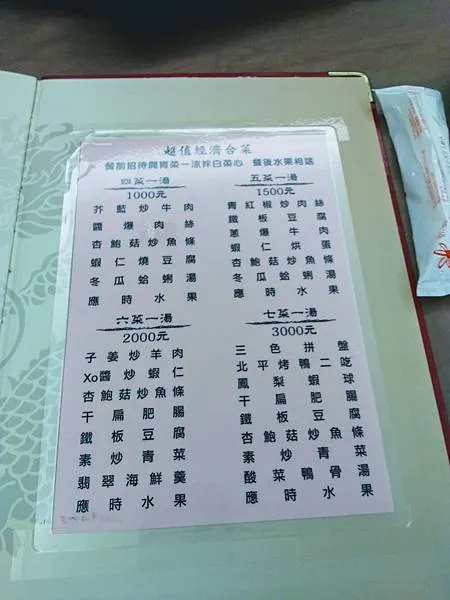 超值經濟合菜
餐前招待開胃菜一涼拌白菜心 餐後水果相送
四菜一湯
1000元
芥藍炒牛肉
醬爆肉絲
杏鮑菇炒魚條
蝦仁燒豆腐
冬瓜蛤蜊湯
應時水果
五菜一湯
1500元
青紅椒炒肉絲
鐵板豆腐
蔥爆牛肉
蝦仁烘蛋
杏鮑菇炒魚條
冬瓜蛤蜊湯
應時水果
六菜一湯
2000元
子姜炒羊肉
Xo醬炒蝦仁
杏鮑菇炒魚條
干扁肥腸
鐵板豆腐
素炒青菜
翡翠海鮮羹
應時水果
七菜一湯
3000元
三色拼盤
北平烤鴨二吃
鳳梨蝦球
干扁肥腸
鐵板豆腐
杏鮑菇炒魚條
素炒青菜
酸菜鴨骨湯
應時水果